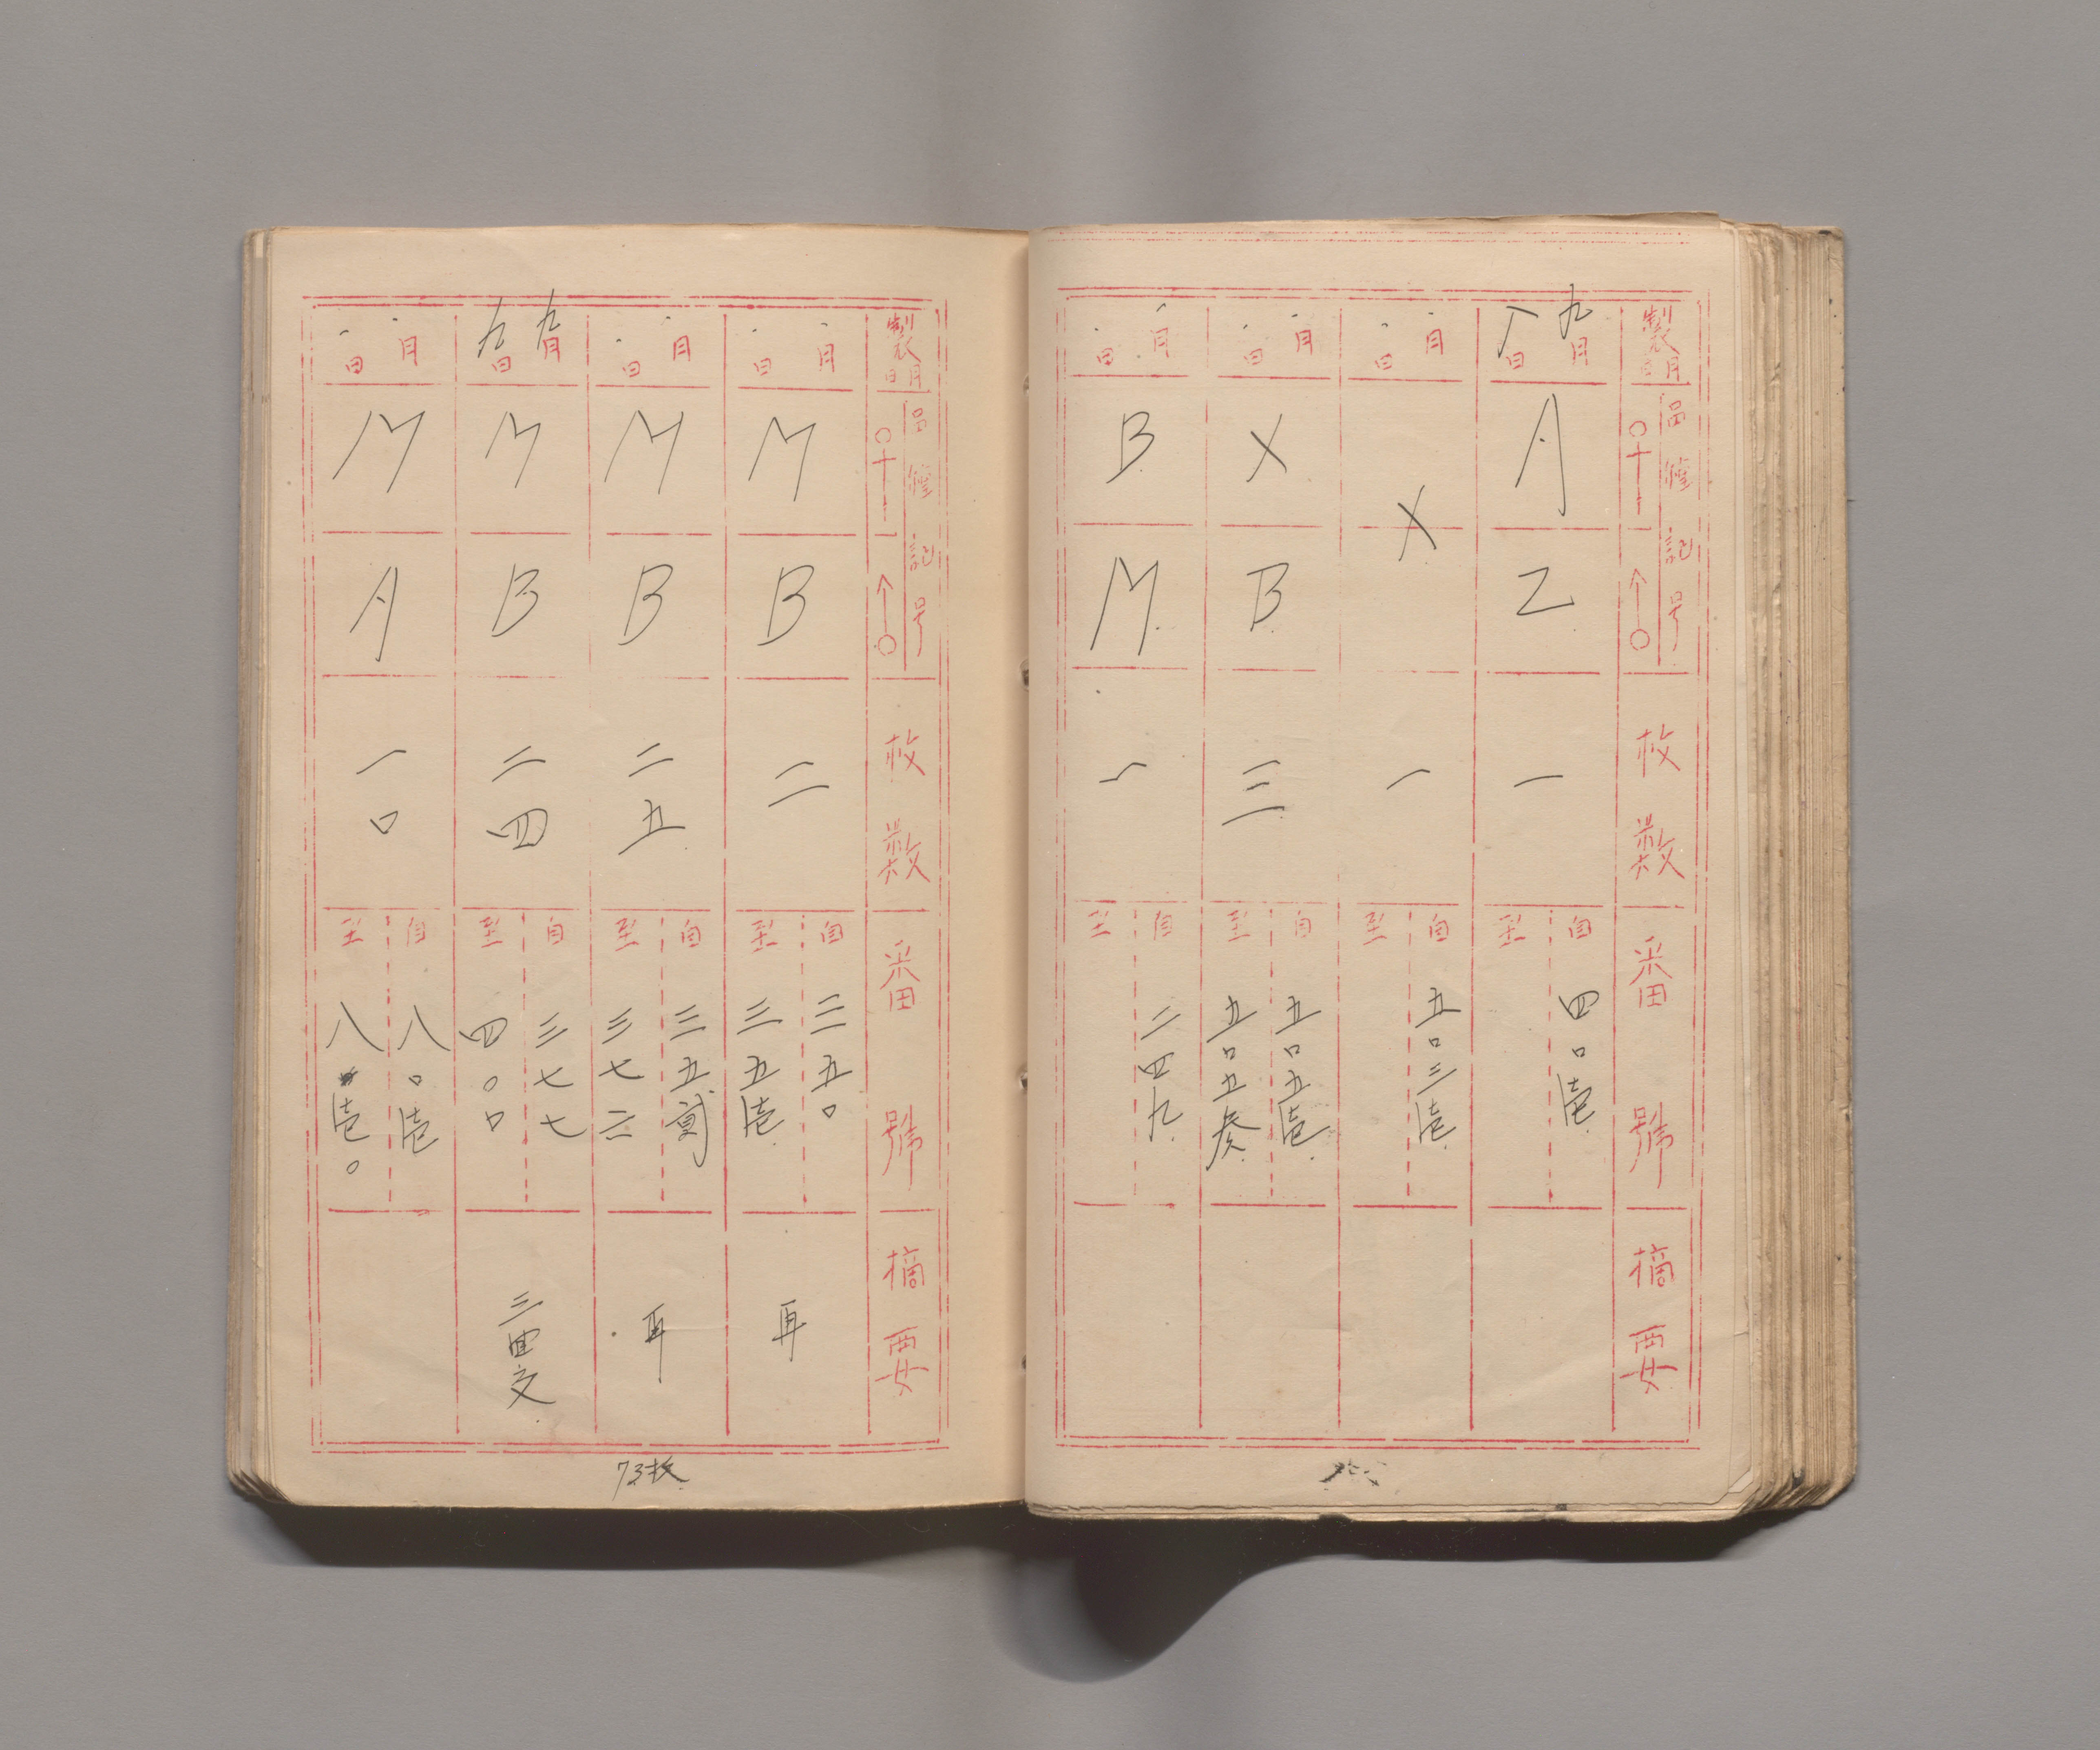 製月日 品種記号 枚数 番號 摘要
九月八日 A Z 一 自四〇壱 至
月日 X 一 自五〇三壱 至
月日 X B 三 自五〇五壱 至五〇五参
月日 B M 一 自二四九 至
製月日 品種記号 枚数 番號 摘要
月日 M B 二 自三五〇 至三五壱 再
月日 M B 二五 自三五貳 至三七六 再
九月九日 M B 二四 自三七七 至四〇〇
月日 M A 一〇 自八〇壱 至八壱〇
73枚